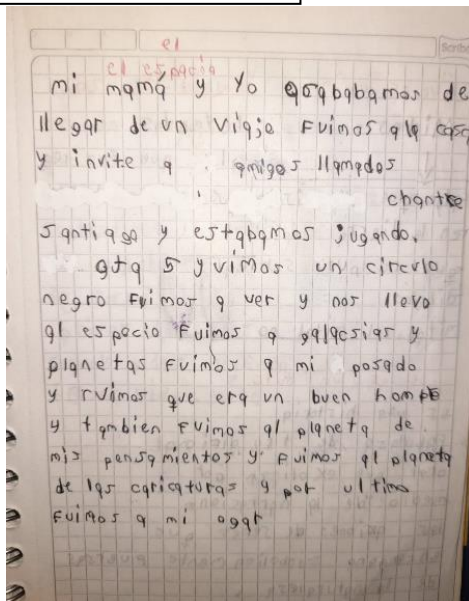 el
el espacio
mi mamá y Yo acababamos de
llegar de un viaje Fuimos a la casa
y invite a amigos llamados
chantre
santiago y estabamos jugando.
gta 5 y vimos un circulo
negro Fuimos a ver y nos llevo
al espacio Fuimos a galacsias y
planetas Fuimos a mi posado
y vimos que era un buen hompe
y tambien Fuimos al planeta de
mis pensamientos y Fuimos al planeta
de las caricaturas y por ultimo
Fuimos a mi ogar